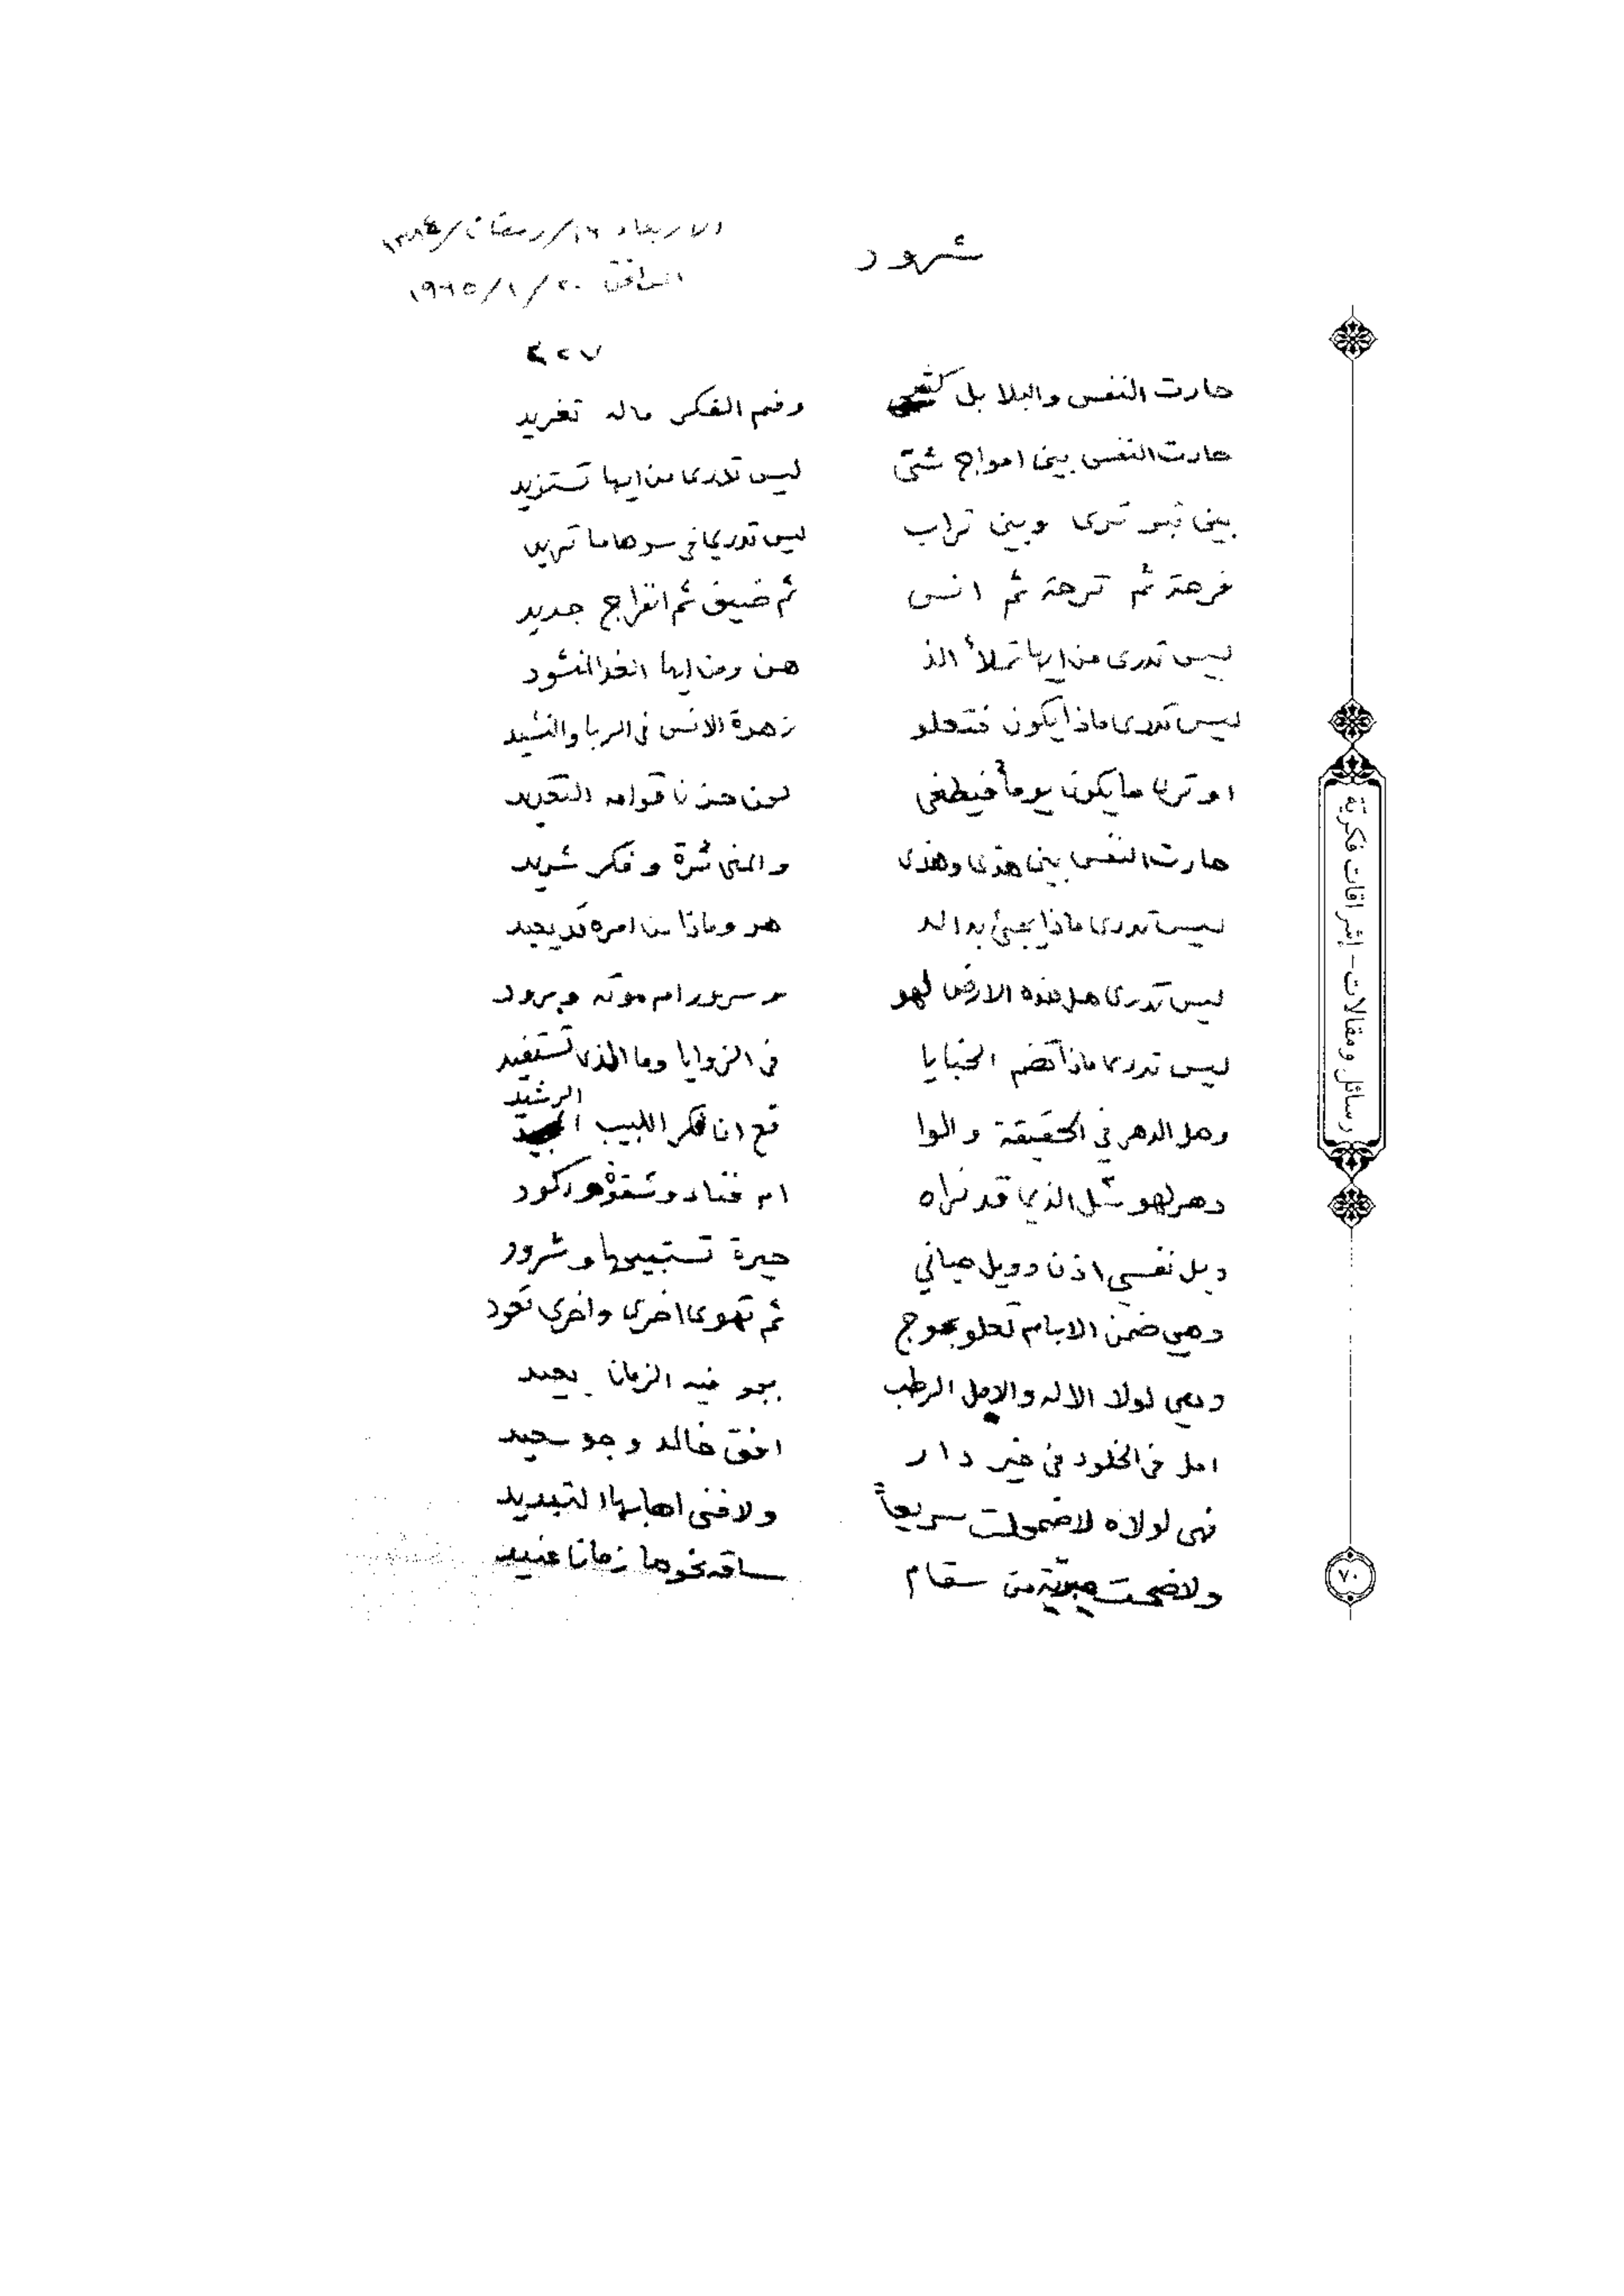 شرود
الاربعاء ١٦/رمضان/١٣٨٤
الموافق ٢٠/١/١٩٦٥
حارت النفس والبلابل وفم الفكر ماله تغريد
حارت النفس بين امواج شتى ليس تدرى من ايها تستزيد
بين تبر ترى وبين تراب ليس تدري في سرها ما تريد
فرحة ثم ترحة ثم انس ثم ضيق ثم انفراج جديد
ليس تدرى من ايها تملأ الذ هن ومن ايها الغد المنشود
ليس تدرى ماذا يكون فتحلو زهرة الانس فى الربا والنشيد
او ترى ما يكون يوماً فيطغى لحن حزن قوامه
حارت النفس بين هذى وهذى والمنى ثرة وفكر شريد
ليس تدرى ماذا يجئ به الد هر وماذا من امره قد يحيد
ليس تدرى هل هذه الارض لهو وسرور ام موتة وبرود
ليس تدرى ماذا تضم الخبايا فى الزوايا وما الذى تستفيد
وهل الدهر في الحقيقة والوا قع انا فكر اللبيب الرشيد
دهر لهو مثل الذي قد نراه ام فناء وشقوة وركود
ويل نفسي اذن وويل حياتي حيرة تستبيحها وشرود
وهي ضمن الايام تعلو بموج ثم تهوى اخرى واخرى تعود
وهي لولا الاله والامل الرطب بجو فيه الزمان
امل فى الخلود في خير دار افق خالد وجو سعيد
فهى لولاه لاضمحلت سريعاً ولافنى اهابها التبديد
ولاضحت من سقام ساقه نحوها زمان عنيد
رسائل ومقالات - إشراقات فكرية
٧٠